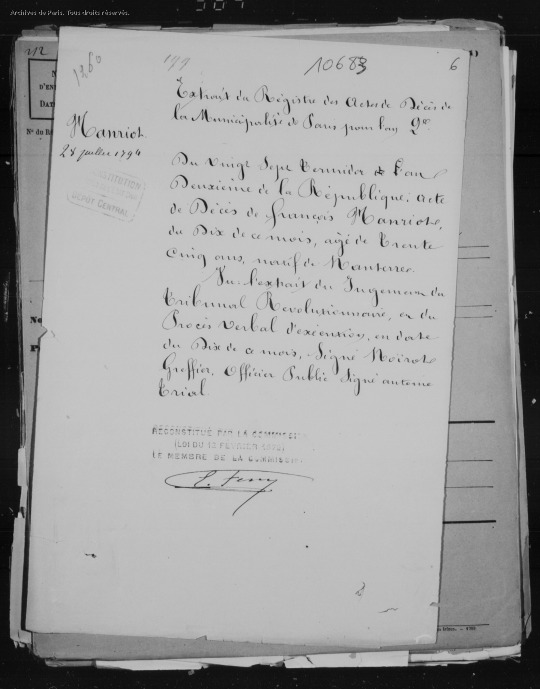 Archives de Paris. Tous droits réservés.
212
1260
199
10683
6
Extrait du Régistre des Actes de Décès de
la Municipalité de Paris pour l'an 2e
Hanriot
28 juillet 1794
DÉPÔT CENTRAL
Du Vingt Sept Termidor de l'an
Deuxième de la République, acte
de Décès de François Hanriot,
du Dix de ce mois, agé de Trente
Cinq ans, natif de Nanterre.
Vu l'extrait du Jugement du
Tribunal Revolutionnaire, et du
Procès Verbal d'exécution, en date
du Dix de ce mois, Signé Noirot
Greffier, Officier Public Signé antoine
Trial.
RECONSTITUÉ PAR LA COMMISSI
(LOI DU 12 FÉVRIER 1872)
LE MEMBRE DE LA COMMISSION